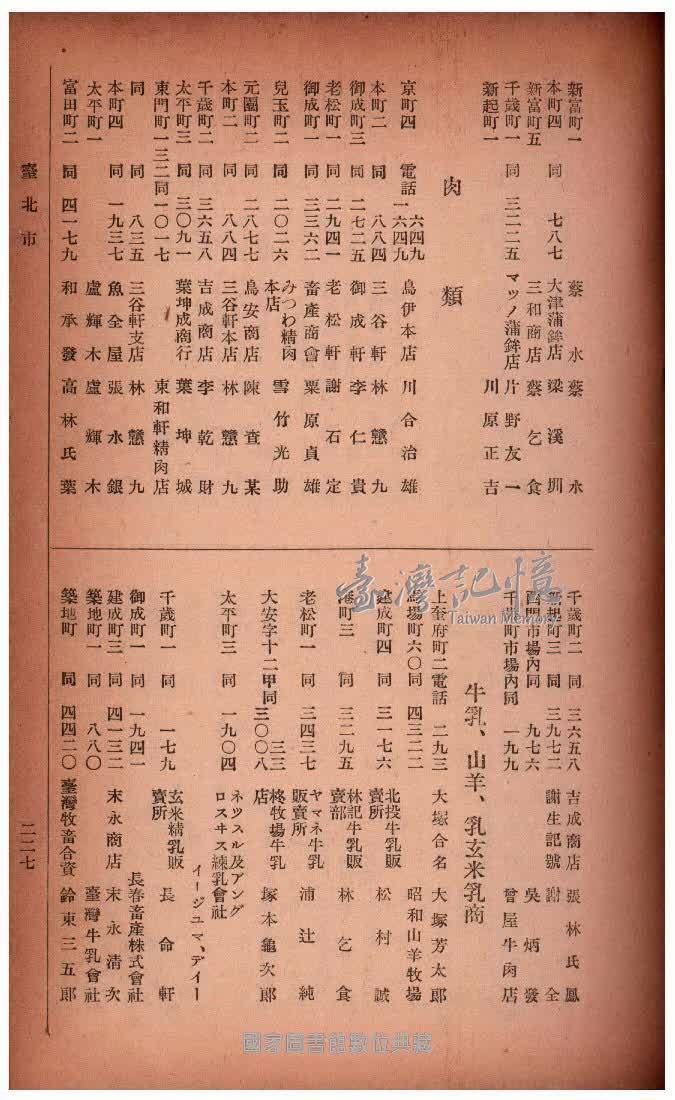 新富町一 蔡水 蔡水
本町四 同 七八七 大津蒲鉾店 梁溪圳
新富町五 三和商店 蔡乞食
千歲町一 同 三二二五 マツノ蒲鉾店 片野友一
新起町一 川原正吉
肉類
京町四 電話 六四九 一六四九 鳥伊本店 川合治雄
本町二 同 八八四 三谷軒 林戇九
御成町三 同 二七二五 御成軒 李仁貴
老松町一 同 二九四一 老松軒 謝石定
御成町一 同 三三六二 畜產商會 栗原貞雄
兒玉町二 同 二〇二六 みつわ精肉本店 雪竹光助
元園町二 同 二八七七 鳥安商店 陳查某
本町二 同 八八四 三谷軒本店 林戇九
千歲町二 同 三六五八 吉成商店 李乾財
太平町三 同 三〇九一 葉坤成商行 葉坤城
東門町一三二同一〇一七 東和軒精肉店
同 同 八三五 三谷軒支店 林戇九
本町四 同 一九三七 魚全屋 張水銀
太平町一 盧輝木 盧輝木
富田町二 同 四一七九 和承發 高林氏葉
千歲町二 同 三六五八 吉成商店 張林氏鳳
新起町三 同 三九七二 謝生記號 謝全
西門市場內同 九七六 吳炳發
千歲町市場內同 一九九 曾屋牛肉店
牛乳、山羊、乳玄米乳商
上奎府町二電話 二九三 大塚合名 大塚芳太郎
馬場町六〇同 四三二二 昭和山羊牧場
建成町四 同 三一七六 北投牛乳販賣所 松村誠
港町三 同 三二九五 林記牛乳販賣部 林乞食
老松町一 同 三四三七 ヤマネ牛乳販賣所 浦辻純
大安字十二甲同 三三 三〇〇八 柊牧場牛乳店 塚本龜次郎
太平町三 同 一九〇四 ネツスル及アングロスヰス練乳會社
イージユマ、デイー
千歲町一 同 一七九 玄米精乳販賣所 長命軒
御成町一 同 一九四一 長春畜產株式會社
建成町三 同 四一三二 末永商店 末永清次
築地町一 同 八八〇 臺灣牛乳會社
築地町 同 四四二〇 臺灣牧畜合資 鈴東三五郎
臺北市
二二七
臺灣記憶
Taiwan Memory
國家圖書館數位典藏